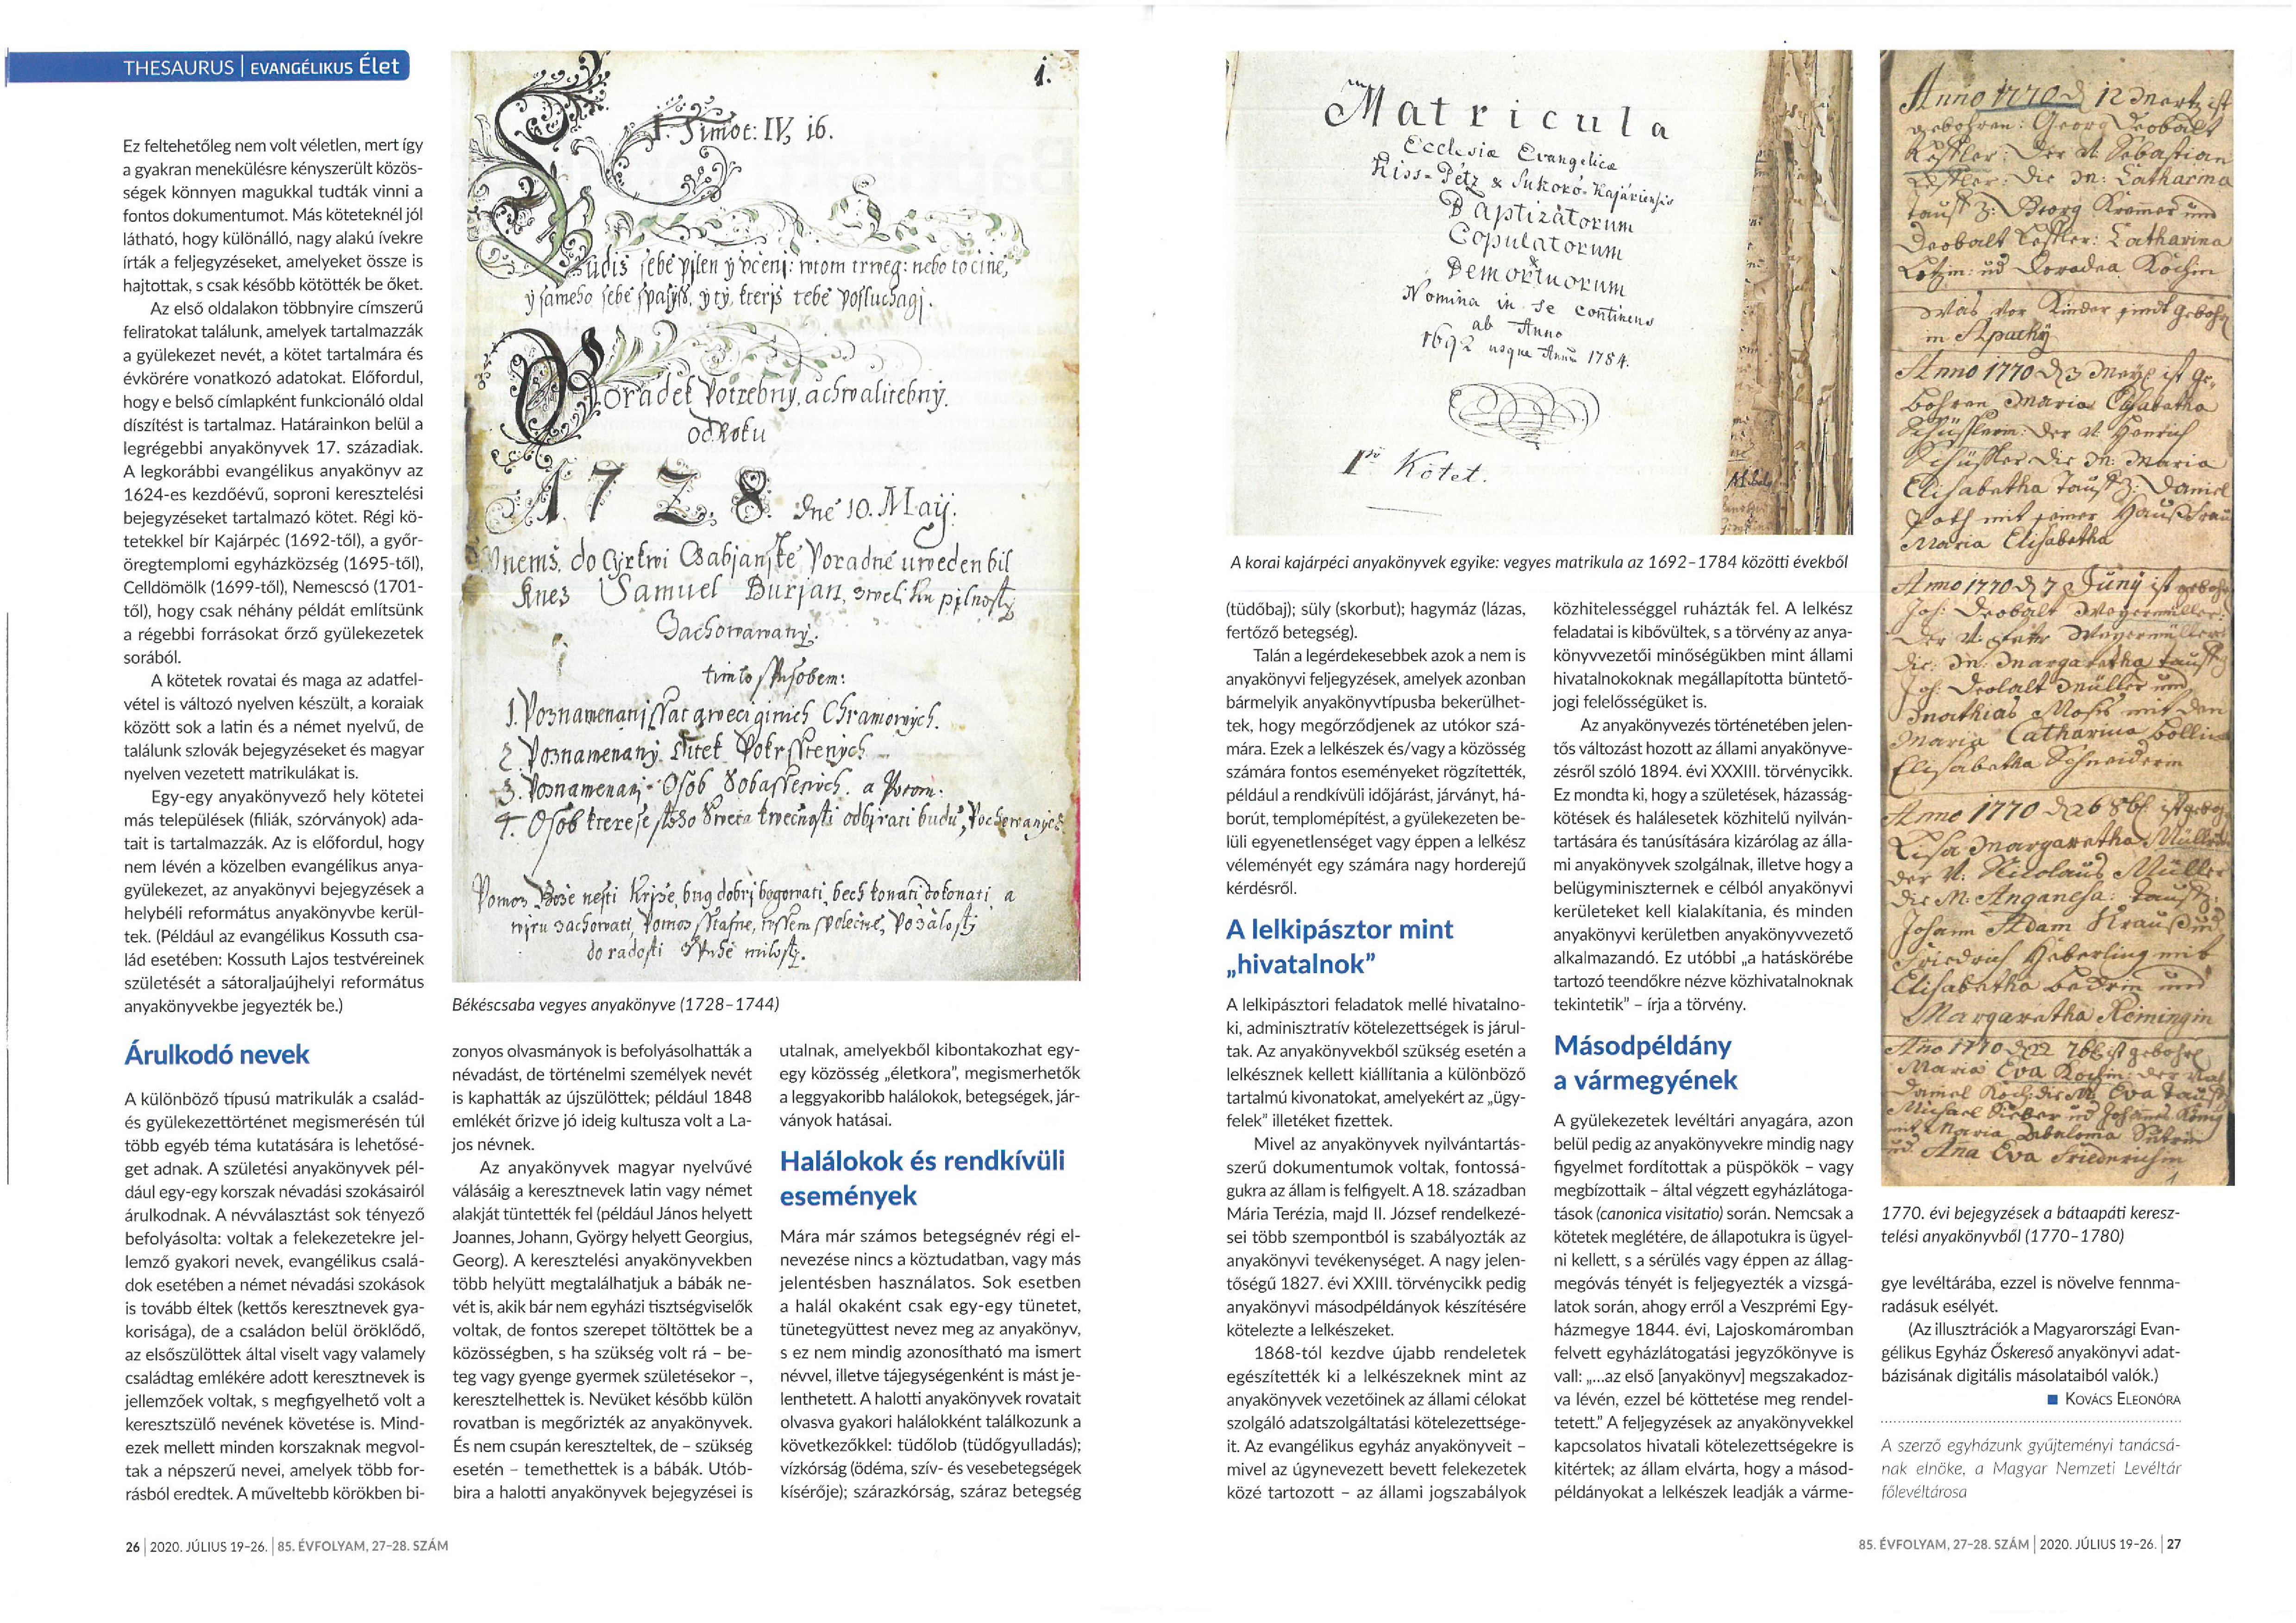 THESAURUS | EVANGÉLIKUS Élet
Ez feltehetőleg nem volt véletlen, mert így
a gyakran menekülésre kényszerült közös-
ségek könnyen magukkal tudták vinni a
fontos dokumentumot. Más köteteknél jól
látható, hogy különálló, nagy alakú ívekre
írták a feljegyzéseket, amelyeket össze is
hajtottak, s csak később kötötték be őket.
Az első oldalakon többnyire címszerű
feliratokat találunk, amelyek tartalmazzák
a gyülekezet nevét, a kötet tartalmára és
évkörére vonatkozó adatokat. Előfordul,
hogy e belső címlapként funkcionáló oldal
díszítést is tartalmaz. Határainkon belül a
legrégebbi anyakönyvek 17. századiak.
A legkorábbi evangélikus anyakönyv az
1624-es kezdőévű, soproni keresztelési
bejegyzéseket tartalmazó kötet. Régi kö-
tetekkel bír Kajárpéc (1692-től), a győr-
öregtemplomi egyházközség (1695-től),
Celldömölk (1699-től), Nemescsó (1701-
től), hogy csak néhány példát említsünk
a régebbi forrásokat őrző gyülekezetek
sorából.
A kötetek rovatai és maga az adatfel-
vétel is változó nyelven készült, a koraiak
között sok a latin és a német nyelvű, de
találunk szlovák bejegyzéseket és magyar
nyelven vezetett matrikulákat is.
Egy-egy anyakönyvező hely kötetei
más települések (filiák, szórványok) ada-
tait is tartalmazzák. Az is előfordul, hogy
nem lévén a közelben evangélikus anya-
gyülekezet, az anyakönyvi bejegyzések a
helybéli református anyakönyvbe kerül-
tek. (Például az evangélikus Kossuth csa-
lád esetében: Kossuth Lajos testvéreinek
születését a sátoraljaújhelyi református
anyakönyvekbe jegyezték be.)
Árulkodó nevek
A különböző típusú matrikulák a család-
és gyülekezettörténet megismerésén túl
több egyéb téma kutatására is lehetősé-
get adnak. A születési anyakönyvek pél-
dául egy-egy korszak névadási szokásairól
árulkodnak. A névválasztást sok tényező
befolyásolta: voltak a felekezetekre jel-
lemző gyakori nevek, evangélikus csalá-
dok esetében a német névadási szokások
is tovább éltek (kettős keresztnevek gya-
korisága), de a családon belül öröklődő,
az elsőszülöttek által viselt vagy valamely
családtag emlékére adott keresztnevek is
jellemzőek voltak, s megfigyelhető volt a
keresztszülő nevének követése is. Mind-
ezek mellett minden korszaknak megvol-
tak a népszerű nevei, amelyek több for-
rásból eredtek. A műveltebb körökben bi-
1.
I. Timot: IV, 16.
od Roku
1728. dne 10. Maij.
Samuel Burjan
1.
2.
3.
4.
Békéscsaba vegyes anyakönyve (1728–1744)
zonyos olvasmányok is befolyásolhatták a
névadást, de történelmi személyek nevét
is kaphatták az újszülöttek; például 1848
emlékét őrizve jó ideig kultusza volt a La-
jos névnek.
Az anyakönyvek magyar nyelvűvé
válásáig a keresztnevek latin vagy német
alakját tüntették fel (például János helyett
Joannes, Johann, György helyett Georgius,
Georg). A keresztelési anyakönyvekben
több helyütt megtalálhatjuk a bábák ne-
vét is, akik bár nem egyházi tisztségviselők
voltak, de fontos szerepet töltöttek be a
közösségben, s ha szükség volt rá – be-
teg vagy gyenge gyermek születésekor –,
keresztelhettek is. Nevüket később külön
rovatban is megőrizték az anyakönyvek.
És nem csupán kereszteltek, de – szükség
esetén – temethettek is a bábák. Utób-
bira a halotti anyakönyvek bejegyzései is
utalnak, amelyekből kibontakozhat egy-
egy közösség „életkora”, megismerhetők
a leggyakoribb halálokok, betegségek, jár-
ványok hatásai.
Halálokok és rendkívüli
események
Mára már számos betegségnév régi el-
nevezése nincs a köztudatban, vagy más
jelentésben használatos. Sok esetben
a halál okaként csak egy-egy tünetet,
tünetegyüttest nevez meg az anyakönyv,
s ez nem mindig azonosítható ma ismert
névvel, illetve tájegységenként is mást je-
lenthetett. A halotti anyakönyvek rovatait
olvasva gyakori halálokként találkozunk a
következőkkel: tüdőlob (tüdőgyulladás);
vízkórság (ödéma, szív- és vesebetegségek
kísérője); szárazkórság, száraz betegség
26 | 2020. JÚLIUS 19–26. | 85. ÉVFOLYAM, 27–28. SZÁM
Matricula
Ecclesiæ Evangelicæ
Kiss-Pétz & Sukoró-Kajáriensis
Baptizatorum
Copulatorum
&
Demortuorum
Nomina in se continens
ab Anno
1692 usque Annum 1784.
1ső Kötet.
A korai kajárpéci anyakönyvek egyike: vegyes matrikula az 1692–1784 közötti évekből
(tüdőbaj); süly (skorbut); hagymáz (lázas,
fertőző betegség).
Talán a legérdekesebbek azok a nem is
anyakönyvi feljegyzések, amelyek azonban
bármelyik anyakönyvtípusba bekerülhet-
tek, hogy megőrződjenek az utókor szá-
mára. Ezek a lelkészek és/vagy a közösség
számára fontos eseményeket rögzítették,
például a rendkívüli időjárást, járványt, há-
borút, templomépítést, a gyülekezeten be-
lüli egyenetlenséget vagy éppen a lelkész
véleményét egy számára nagy horderejű
kérdésről.
A lelkipásztor mint
„hivatalnok”
A lelkipásztori feladatok mellé hivatalno-
ki, adminisztratív kötelezettségek is járul-
tak. Az anyakönyvekből szükség esetén a
lelkésznek kellett kiállítania a különböző
tartalmú kivonatokat, amelyekért az „ügy-
felek” illetéket fizettek.
Mivel az anyakönyvek nyilvántartás-
szerű dokumentumok voltak, fontossá-
gukra az állam is felfigyelt. A 18. században
Mária Terézia, majd II. József rendelkezé-
sei több szempontból is szabályozták az
anyakönyvi tevékenységet. A nagy jelen-
tőségű 1827. évi XXIII. törvénycikk pedig
anyakönyvi másodpéldányok készítésére
kötelezte a lelkészeket.
1868-tól kezdve újabb rendeletek
egészítették ki a lelkészeknek mint az
anyakönyvek vezetőinek az állami célokat
szolgáló adatszolgáltatási kötelezettsége-
it. Az evangélikus egyház anyakönyveit –
mivel az úgynevezett bevett felekezetek
közé tartozott – az állami jogszabályok
közhitelességgel ruházták fel. A lelkész
feladatai is kibővültek, s a törvény az anya-
könyvvezetői minőségükben mint állami
hivatalnokoknak megállapította büntető-
jogi felelősségüket is.
Az anyakönyvezés történetében jelen-
tős változást hozott az állami anyakönyve-
zésről szóló 1894. évi XXXIII. törvénycikk.
Ez mondta ki, hogy a születések, házasság-
kötések és halálesetek közhitelű nyilván-
tartására és tanúsítására kizárólag az álla-
mi anyakönyvek szolgálnak, illetve hogy a
belügyminiszternek e célból anyakönyvi
kerületeket kell kialakítania, és minden
anyakönyvi kerületben anyakönyvvezető
alkalmazandó. Ez utóbbi „a hatáskörébe
tartozó teendőkre nézve közhivatalnoknak
tekintetik” – írja a törvény.
Másodpéldány
a vármegyének
A gyülekezetek levéltári anyagára, azon
belül pedig az anyakönyvekre mindig nagy
figyelmet fordítottak a püspökök – vagy
megbízottaik – által végzett egyházlátoga-
tások (canonica visitatio) során. Nemcsak a
kötetek meglétére, de állapotukra is ügyel-
ni kellett, s a sérülés vagy éppen az állag-
megóvás tényét is feljegyezték a vizsgá-
latok során, ahogy erről a Veszprémi Egy-
házmegye 1844. évi, Lajoskomáromban
felvett egyházlátogatási jegyzőkönyve is
vall: „...az első [anyakönyv] megszakadoz-
va lévén, ezzel bé köttetése meg rendel-
tetett.” A feljegyzések az anyakönyvekkel
kapcsolatos hivatali kötelezettségekre is
kitértek; az állam elvárta, hogy a másod-
példányokat a lelkészek leadják a várme-
Anno 1770
Maria Elisabetha
Anno 1770
Elisabetha Schneiderin
Anno 1770
Johann Adam
Friedrich Heberling mit
Elisabetha
1770. évi bejegyzések a bátaapáti keresz-
telési anyakönyvből (1770–1780)
gye levéltárába, ezzel is növelve fennma-
radásuk esélyét.
(Az illusztrációk a Magyarországi Evan-
gélikus Egyház Őskereső anyakönyvi adat-
bázisának digitális másolataiból valók.)
■ KOVÁCS ELEONÓRA
A szerző egyházunk gyűjteményi tanácsá-
nak elnöke, a Magyar Nemzeti Levéltár
főlevéltárosa
85. ÉVFOLYAM, 27–28. SZÁM | 2020. JÚLIUS 19–26. | 27